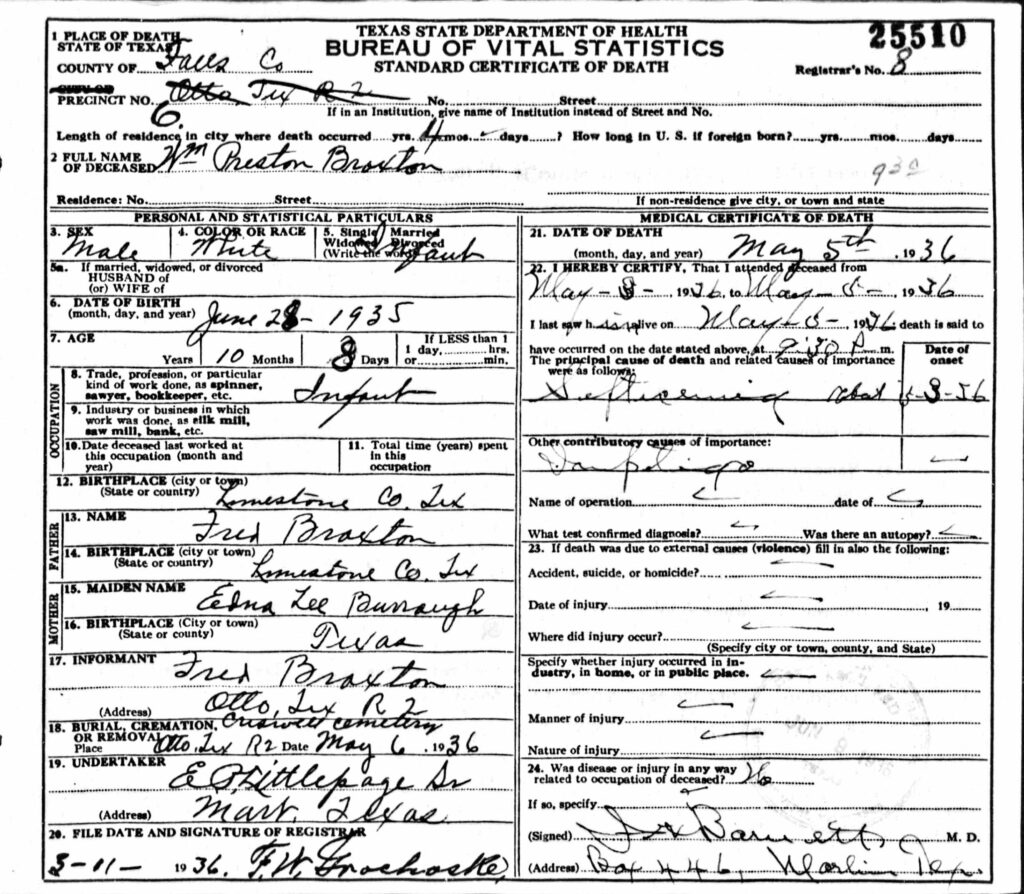 TEXAS STATE DEPARTMENT OF HEALTH
BUREAU OF VITAL STATISTICS
STANDARD CERTIFICATE OF DEATH
25510
Registrar's No. 8
1 PLACE OF DEATH
STATE OF TEXAS
COUNTY OF Falls Co
CITY OR
PRECINCT NO. Otto, Tex R 2 No. Street
6.
If in an Institution, give name of Institution instead of Street and No.
Length of residence in city where death occurred yrs. 4 mos. days ? How long in U. S. if foreign born? yrs. mos. days
2 FULL NAME
OF DECEASED Wm Preston Braxton
932
Residence: No. Street
If non-residence give city, or town and state
PERSONAL AND STATISTICAL PARTICULARS
3. SEX
Male
4. COLOR OR RACE
White
5. Single Married
Widowed Divorced
(Write the word)
Infant
5a. If married, widowed, or divorced
HUSBAND of
(or) WIFE of
6. DATE OF BIRTH
(month, day, and year) June 28 - 1935
7. AGE
Years 10 Months 8 Days
If LESS than 1
1 day, hrs.
or min.
OCCUPATION
8. Trade, profession, or particular
kind of work done, as spinner,
sawyer, bookkeeper, etc. Infant
9. Industry or business in which
work was done, as silk mill,
saw mill, bank, etc.
10. Date deceased last worked at
this occupation (month and
year)
11. Total time (years) spent
in this
occupation
12. BIRTHPLACE (city or town)
(State or country) Limestone Co. Tex
FATHER
13. NAME Fred Braxton
14. BIRTHPLACE (city or town)
(State or country) Limestone Co. Tex
MOTHER
15. MAIDEN NAME Edna Lee Burraugh
16. BIRTHPLACE (City or town)
(State or county) Texas
17. INFORMANT Fred Braxton
(Address) Otto, Tex R 2
18. BURIAL, CREMATION, Criswell cemetery
OR REMOVAL
Place Otto, Tex R2 Date May 6, 1936
19. UNDERTAKER E P Littlepage Sr
(Address) Mart, Texas
20. FILE DATE AND SIGNATURE OF REGISTRAR
5-11- 1936. F.W. Grochoske
MEDICAL CERTIFICATE OF DEATH
21. DATE OF DEATH
(month, day, and year) May 5th, 1936
22. I HEREBY CERTIFY, That I attended deceased from
May - 3 - , 1936, to May - 5 - , 1936
I last saw him alive on May - 5 , 1936, death is said to
have occurred on the date stated above, at 9:30 P. m.
The principal cause of death and related causes of importance
were as follows:
Date of
onset
5-3-36
Other contributory causes of importance:
Name of operation date of
What test confirmed diagnosis? Was there an autopsy?
23. If death was due to external causes (violence) fill in also the following:
Accident, suicide, or homicide?
Date of injury , 19
Where did injury occur?
(Specify city or town, county, and State)
Specify whether injury occurred in in-
dustry, in home, or in public place.
Manner of injury
Nature of injury
24. Was disease or injury in any way
related to occupation of deceased? No
If so, specify
(Signed) Barnett, M. D.
(Address) Box 446, Marlin Tex.